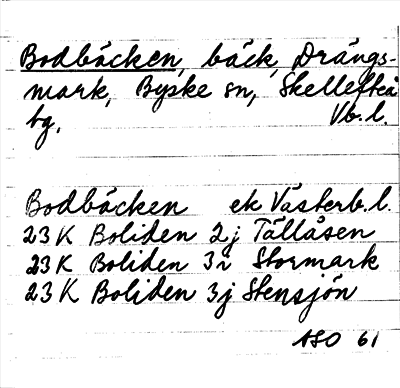 Bodbäcken, bäck, Drängs-
mark, Byske sn, Skellefteå
tg. Vb. l.
Bodbäcken ek Västerb. l.
23 K Boliden 2j Tållåsen
23 K Boliden 3i Stormark
23 K Boliden 3j Stensjön
ASO 61